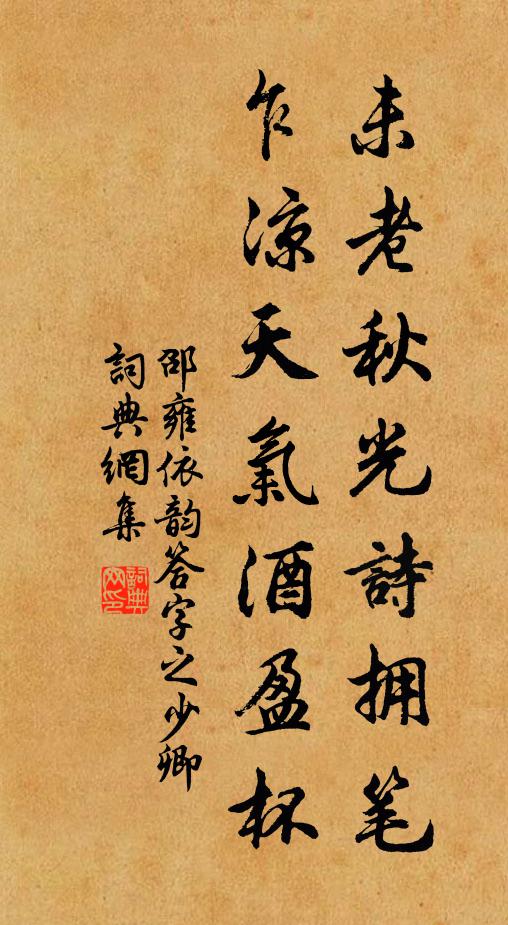 未老秋光詩拥笔
乍凉天氣酒盈杯
邵雍依韵答字之少卿
詞典網集
詞典网印